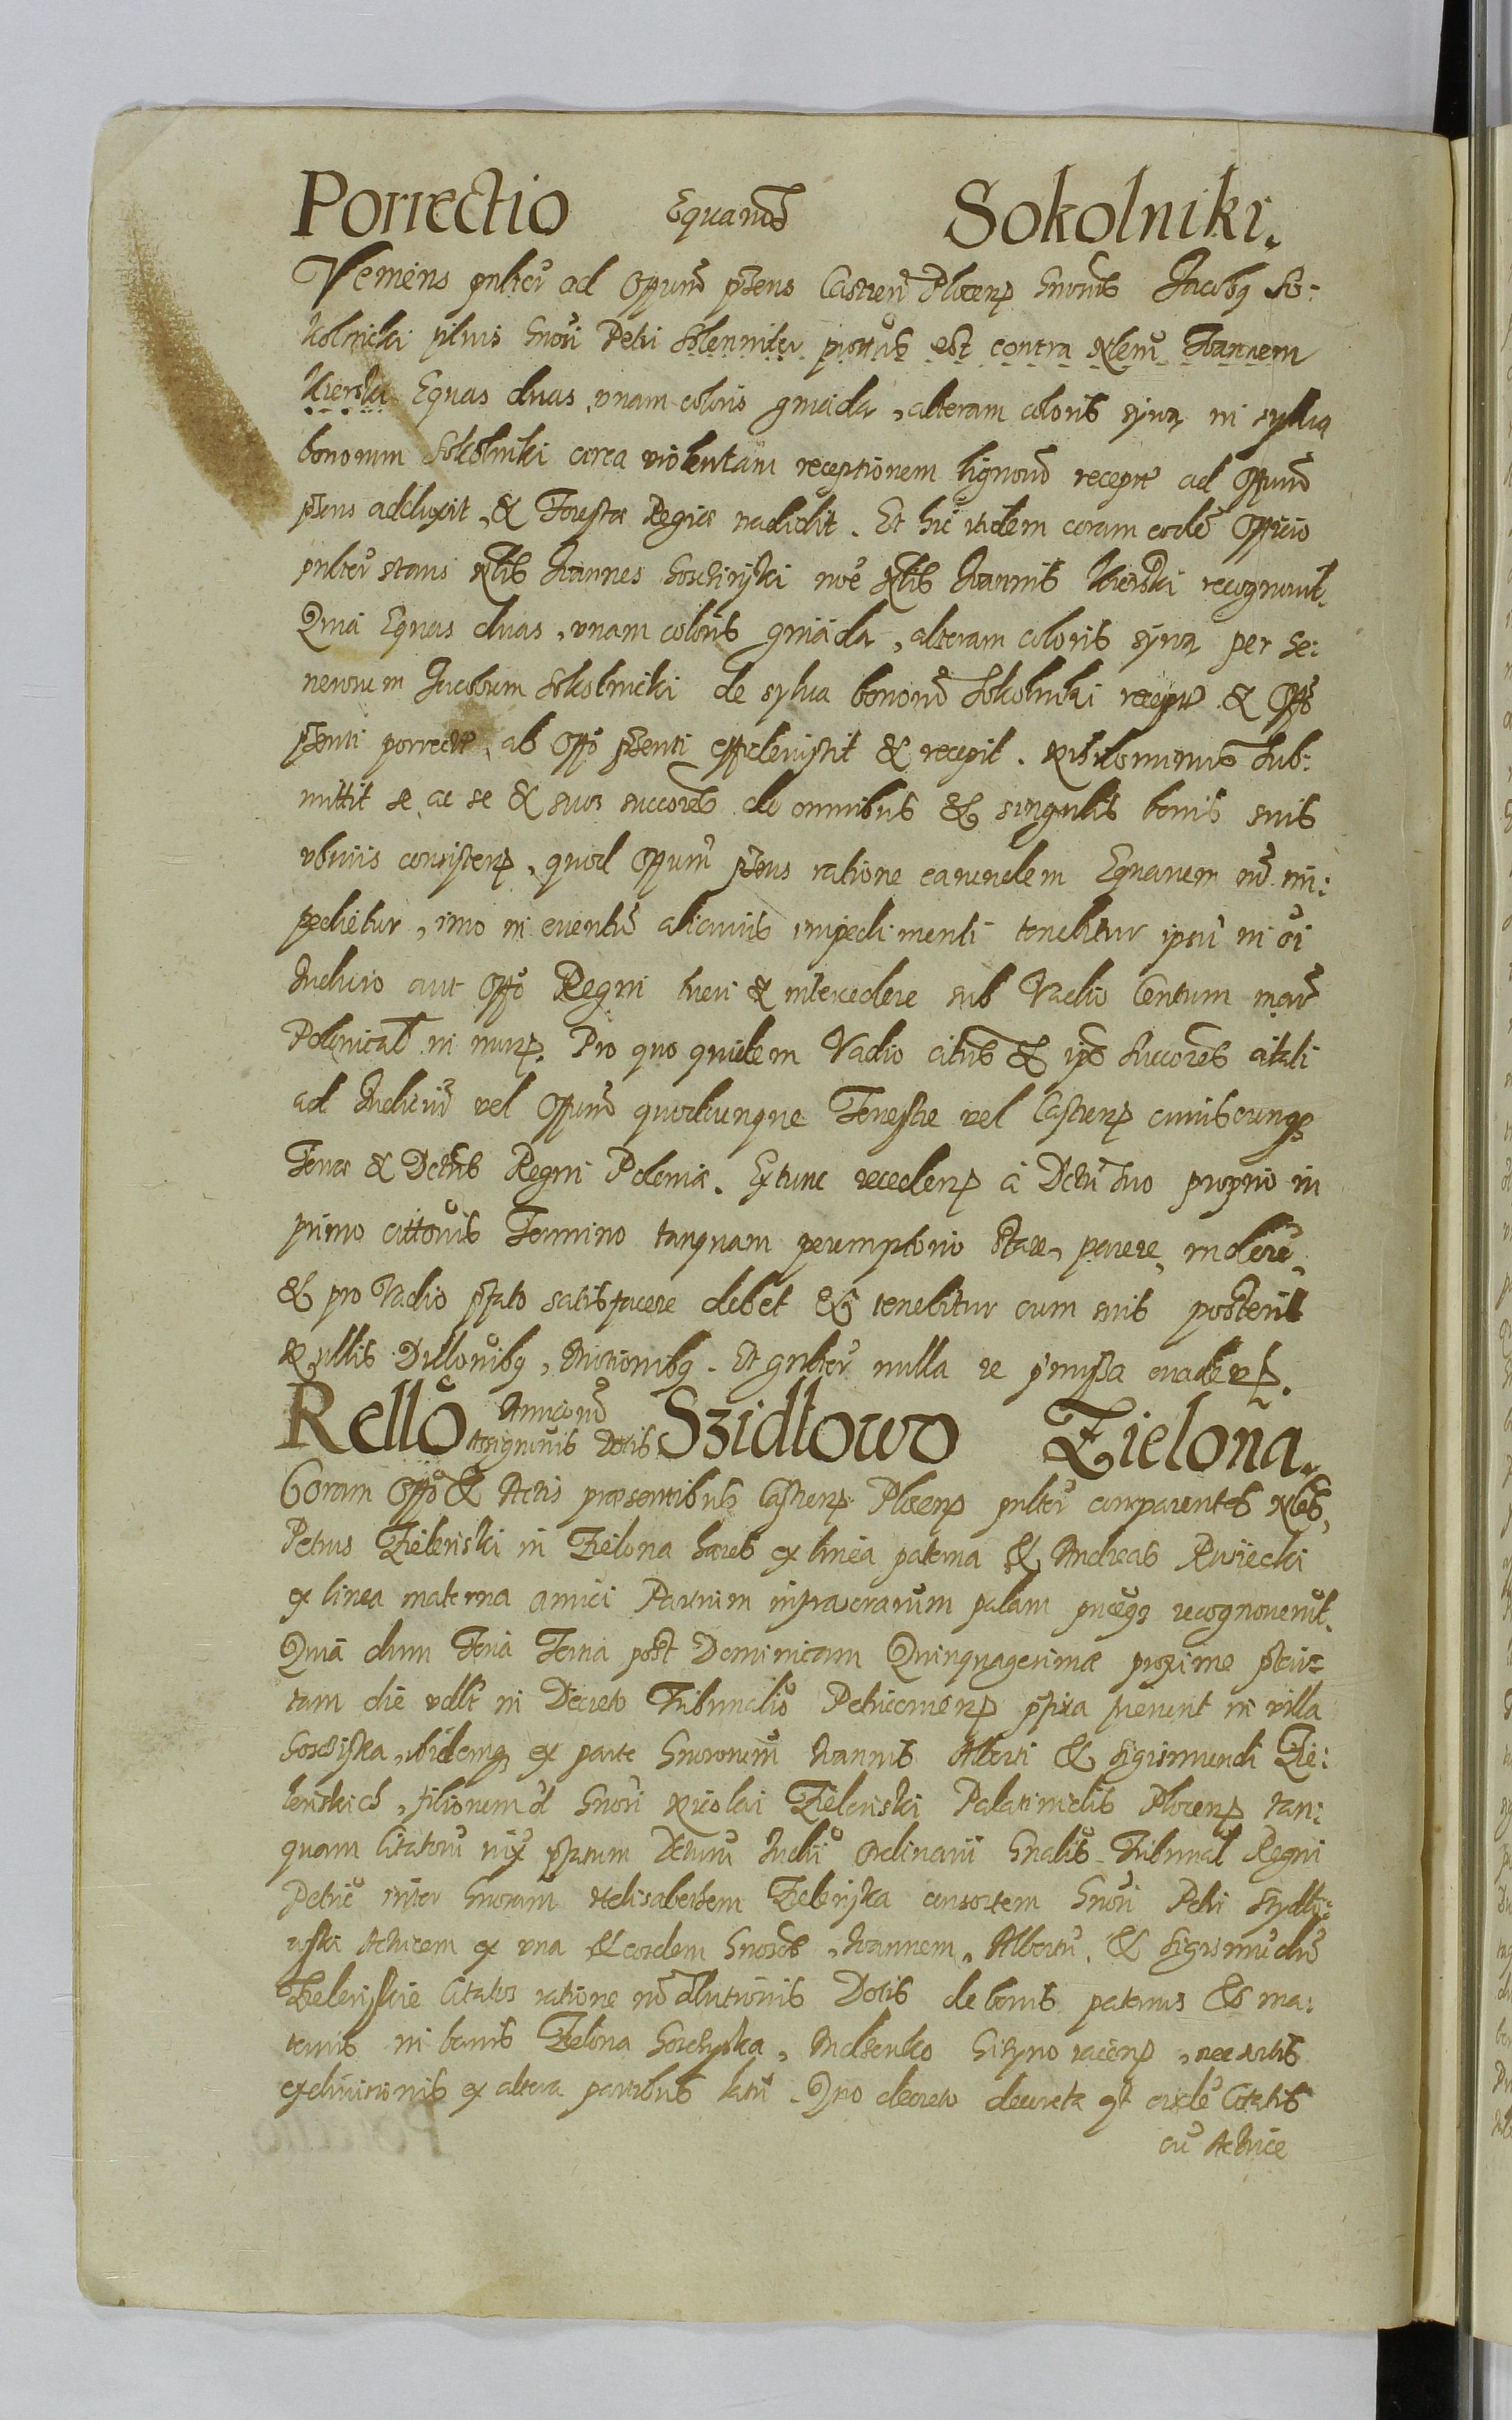 Porrectio Equarum Sokolniki.
Veniens pnlter ad Offum pñens Castren Plocen Gnosus Jacobq So:
kolnicki filius Gnosi Petri Solenniter prottus est contra Nlem Joannem
Kierski Equas duas, vnam coloris gniada, alteram coloris syva in sylva
bonorum Sokolniki circa violentam receptionem lignorũ receptas ad Offum
pñens adduxit, & Forestæ Regiæ tradidit. Et hic itidem coram eodẽ Officio
pnlter stans Nlis Joannes noẽ Nlis Joannis Kierski recognovit.
Quia Equas duas, vnam coloris gniada, alteram coloris syva per Ge:
nerosum Jacobum Sokolnicki de sylva bonorũ Sokolniki receptas & Offo
pñenti porrectas, ab Offo pñenti & recepit. Sub:
mittit se ac se & suos succores de omnibus & singulis bonis suis
vbivis consisten, quod Offum pñens ratione earundem Equarum nõ im:
pedietur, imo in eventũ alicuius impedimenti tenebitur ipsũ in oi
Judicio aut Offo Regni tueri & intercedere sub Vadio Centum mar
Polonical in nurp. Pro quo quidem Vadio citus & ips Succores citati
ad Judiciũ vel Offum quodcunque Terrestre vel Castren cuiuscunq
Terræ & Dctus Regni Poloniæ. Ex tunc receden a Dctu suo proprio in
primo cittonis Termino tanquam peremptorio stare, parere, rndere,
& pro Vadio pfato satisfacere debet & tenebitur cum suis posteris
Nullis Dillonibq, Motionibq. Et gnlter nulla re pmissa evaden.
Rello Amicorũ Dotis Szidłowo Zielona.
Coram Offo & Actis præsentibus Castren Plocen pnlter comparentes Nles,
Petrus Zielenski in Zielona hæres ex linea paterna & Andreas
ex linea materna amici Partium infrascrarum palam recognoverũt.
Quia dum Feria Tertia post Dominicam Quinquagesimæ proxime pterì=
tam die vdlt in Decreto Tribunalis Petricovien pfixa fuerunt in villa
ibidemq ex parte Gnosorum Joannis Alberti & Sigismundi Zie:
lenskich, filiorum Gnosi Nicolai Zielenski Palatinidis Plocen tan:
quam Citatorũ pfatum Dctum Judii Ordinarii Gnalis Tribunal Regni
Petric inter Gnosam Helisabethem Zielenska consortem Gnosi Petri Szydło:
wski Actricem ex vna & eosdem Gnosos, Joannem, Albertũ, & Sigismũdũ
Zielenskie Citatos ratione nõ Dotis de bonis paternis & ma:
ternis in bonis Zielona
exdivisionis ex altera partibus latũ. Quo decreto decreta est eisdẽ Citatis
cũ Actrice